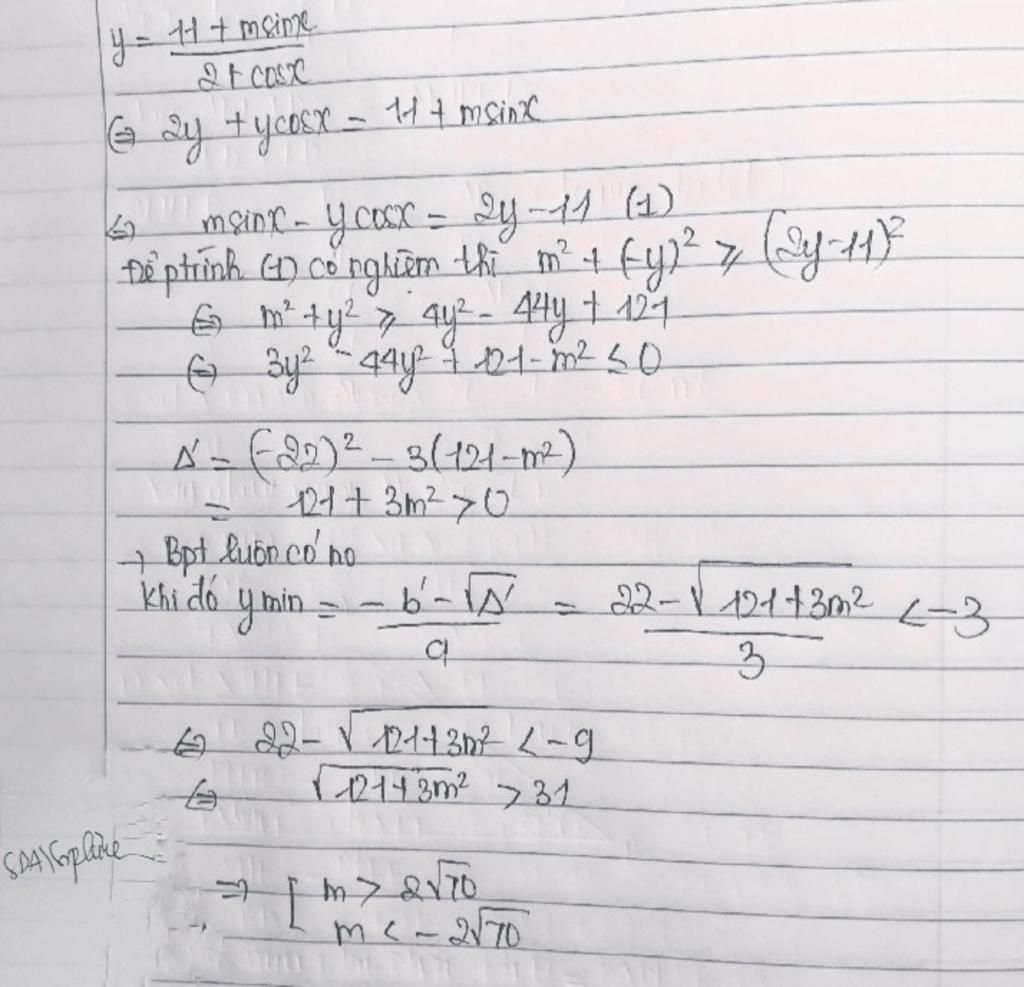 y = \frac{11 + msinx}{2 + cosx}
⇔ 2y + ycosx = 11 + msinx
⇔ msinx - ycosx = 2y - 11 (1)
Để ptrình (1) có nghiệm thì m² + (-y)² ≥ (2y-11)²
⇔ m² + y² ≥ 4y² - 44y + 121
⇔ 3y² - 44y² + 121 - m² ≤ 0
Δ' = (-22)² - 3(121 - m²)
= 121 + 3m² > 0
→ Bpt luôn có no
Khi đó y min = \frac{-b' - √Δ'}{a} = \frac{22 - √(121 + 3m²)}{3} < -3
⇔ 22 - √(121 + 3m²) < -9
⇔ √(121 + 3m²) > 31
⇒ [ m > 2√70
m < -2√70